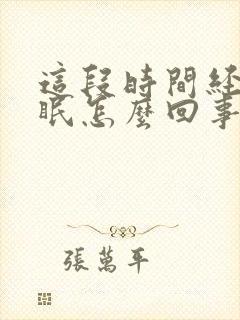 這段時間經
眠怎麼回事
張萬年